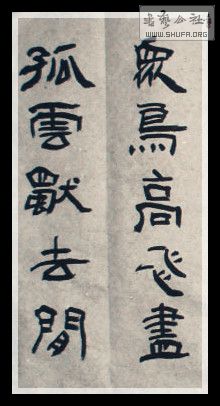 書藝公社
WWW.SHUFA.ORG
眾鳥高飛盡
孤雲獨去閒